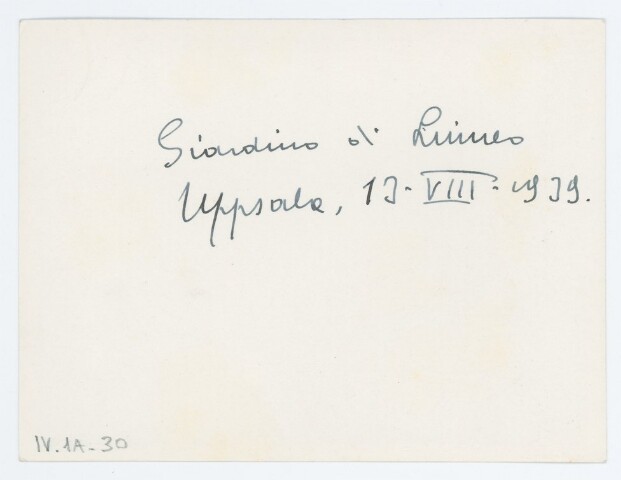 Giardino di Linneo
Uppsala, 13-VIII-1939.
IV.1A-30